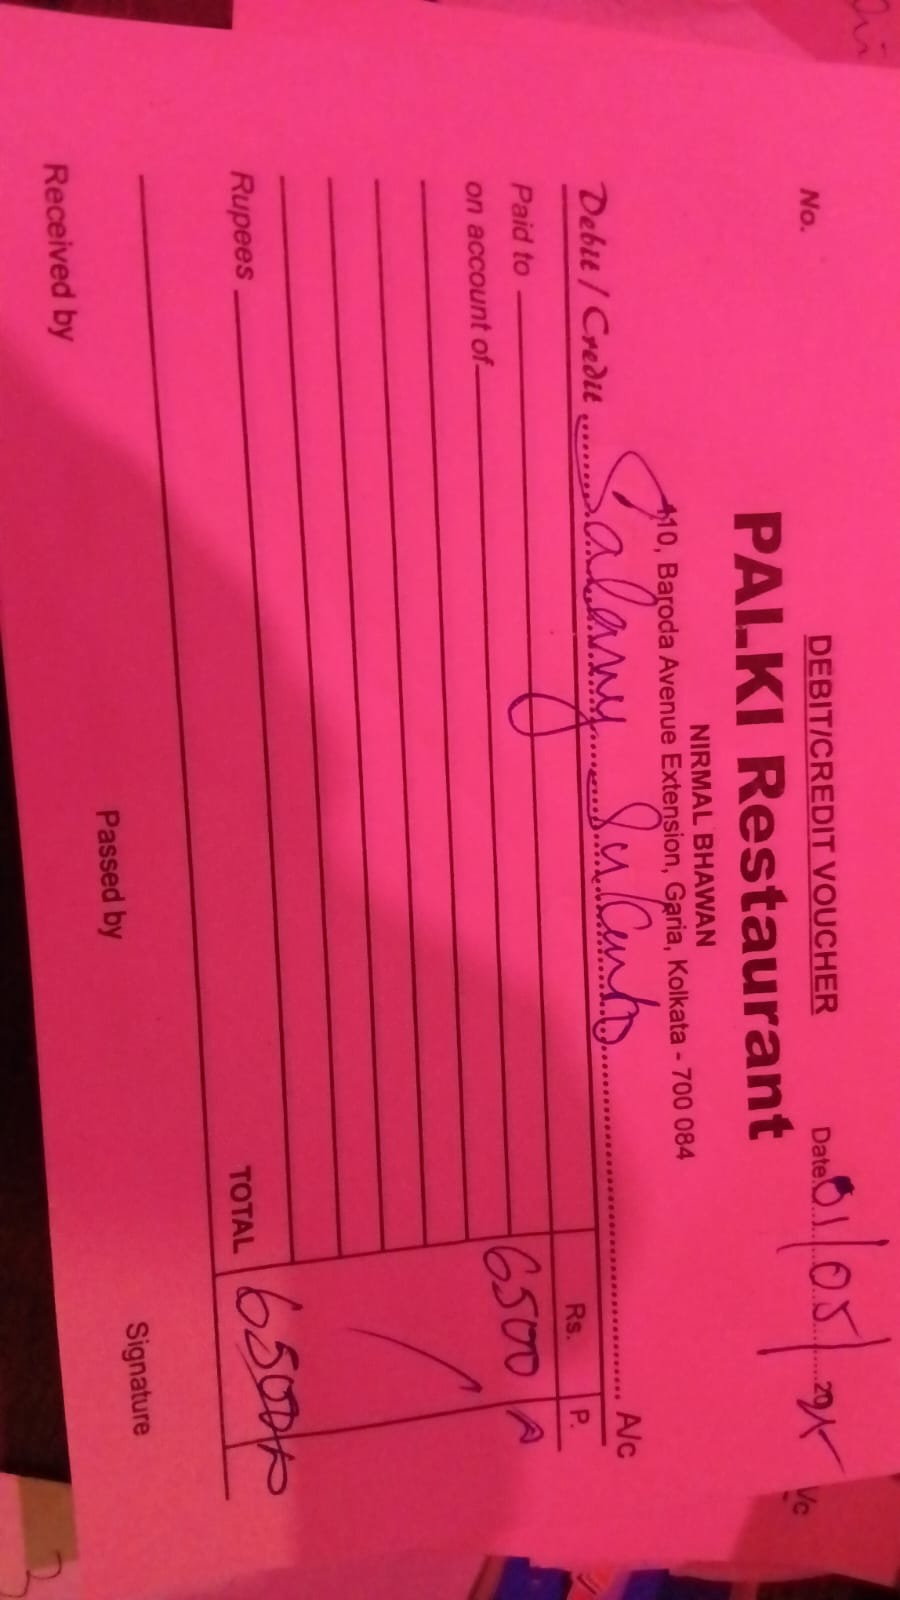 DEBIT/CREDIT VOUCHER
No. Date 01/05/2025
PALKI Restaurant
NIRMAL BHAWAN
410, Baroda Avenue Extension, Garia, Kolkata - 700 084
Debit / Credit Salary Sukanto A/c
Rs. P.
Paid to 6500
on account of
Rupees TOTAL 6500
Received by Passed by Signature